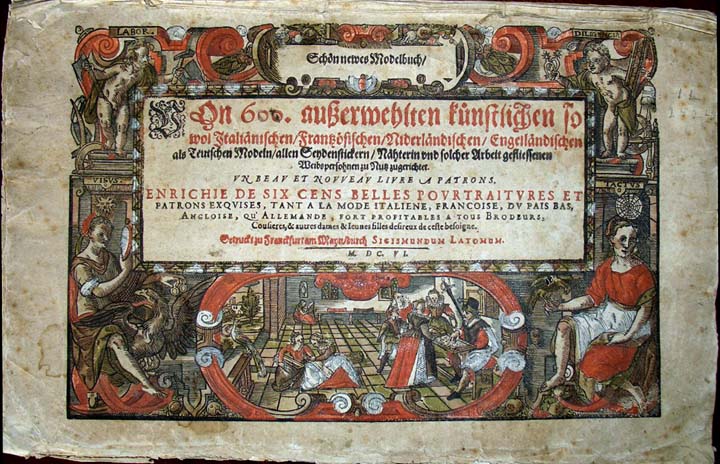 LABOR.
DILIGENTIA
Schön newes Modelbuch/
VOn 600. außerwehlten künstlichen so
wol Italiänischen/Frantzösischen/Niderländischen/Engelländischen
als Teutschen Modeln/allen Seydenstickern/Nähterin vnd solcher Arbeit geflissenen
Weibspersohnen zu Nutz zugerichtet.
VN BEAV ET NOVVEAV LIVRE A PATRONS,
ENRICHIE DE SIX CENS BELLES POVRTRAITVRES ET
PATRONS EXQVISES, TANT A LA MODE ITALIENE, FRANCOISE, DV PAIS BAS,
ANGLOISE, QU'ALLEMANDE, FORT PROFITABLES A TOUS BRODEURS,
Cousieres, & autres dames & Ieunes filles desireux de ceste besoigne.
Getruckt zu Franckfurt am Mayn/durch SIGISMUNDUM LATOMUM.
M. DC. VI.
VISVS
TACTVS